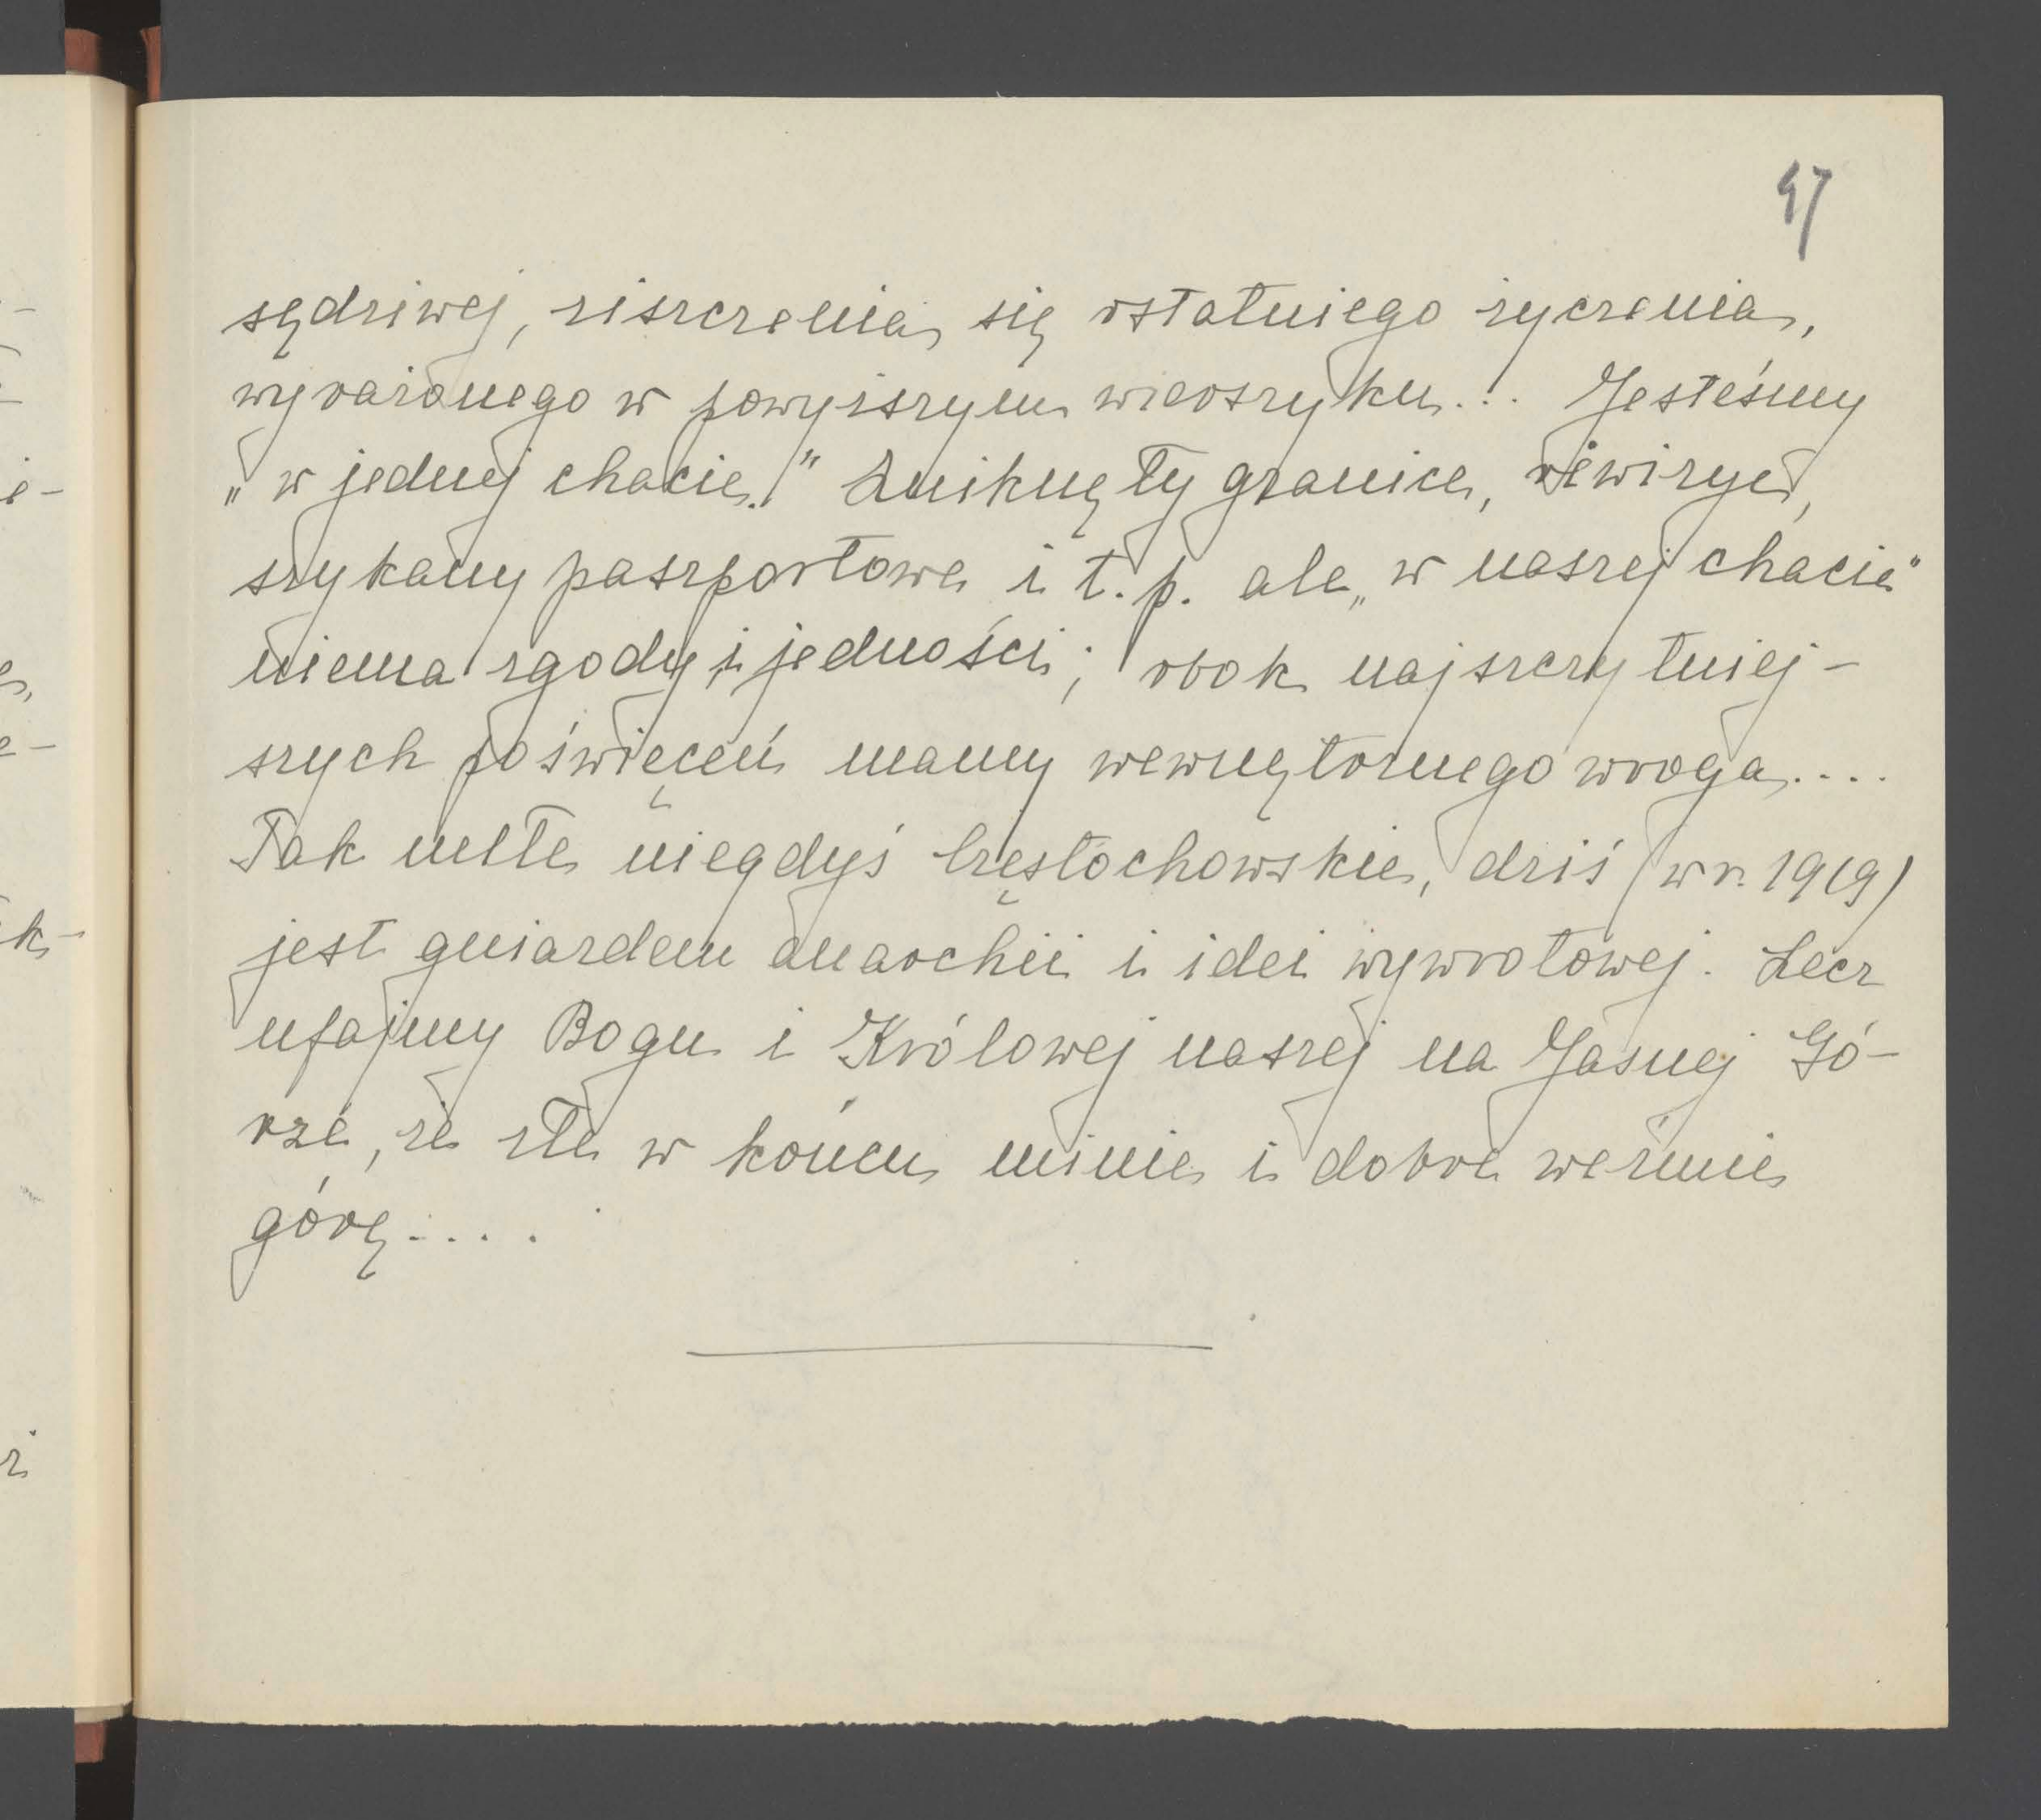 47
sędziwej, ziszczenia się ostatniego życzenia,
wyrażonego w powyższym wierszyku... Jesteśmy
„w jednej chacie!” Zniknęły granice, rewizye,
szykany paszportowe i t. p. ale „w naszej chacie”
niema zgody i jedności; obok najszczytniej-
szych poświęceń mamy wewnętrznego wroga....
Tak miłe niegdyś Częstochowskie, dziś (w r. 1919)
jest gniazdem anarchii i idei wywrotowej. Lecz
ufajmy Bogu i Królowej naszej na Jasnej Gó-
rze, że złe w końcu minie i dobre weźmie
górę....